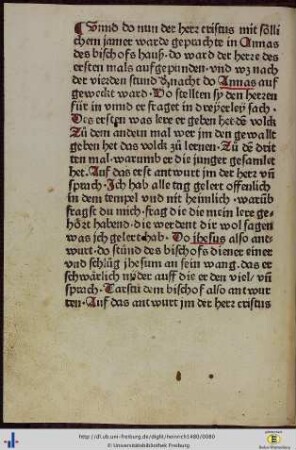 ¶ Vnnd do nun der herr cristus mit sölli
chem jamer warde geprachte in Annas
des bischofs hauß. do ward der herre des
ersten mals aufgepunden. vnd wz nach
der vierden stund d' nacht do Annas auf
geweckt ward. Do stellten sy den herren
für in vnnd er fraget in dreyerley sach.
Des ersten was lere er geben het dē volck
Zů dem andern mal wer jm den gewallt
geben het das volck zů lernen. Zů dē drit
ten mal. warumb er die junger gesamlet
het. Auf das erst antwurt jm der herr vñ
sprach. Ich hab alle tag gelert offenlich
in dem tempel vnd nit heimlich. warūb
fragst du mich. frag die die mein lere ge
hört habend. die werdent dir wol sagen
was ich gelert hab. Do ihesus also ant
wurt. do stůnd des bischofs diener einer
vnd schlůg jhesum an sein wang. das er
schwärlich nyder auff die erden viel/ vñ
sprach. Tarstu dem bischof also antwur
ten. Auf das antwurt jm der herr cristus
http://dl.ub.uni-freiburg.de/diglit/heinrich1480/0080
© Universitätsbibliothek Freiburg